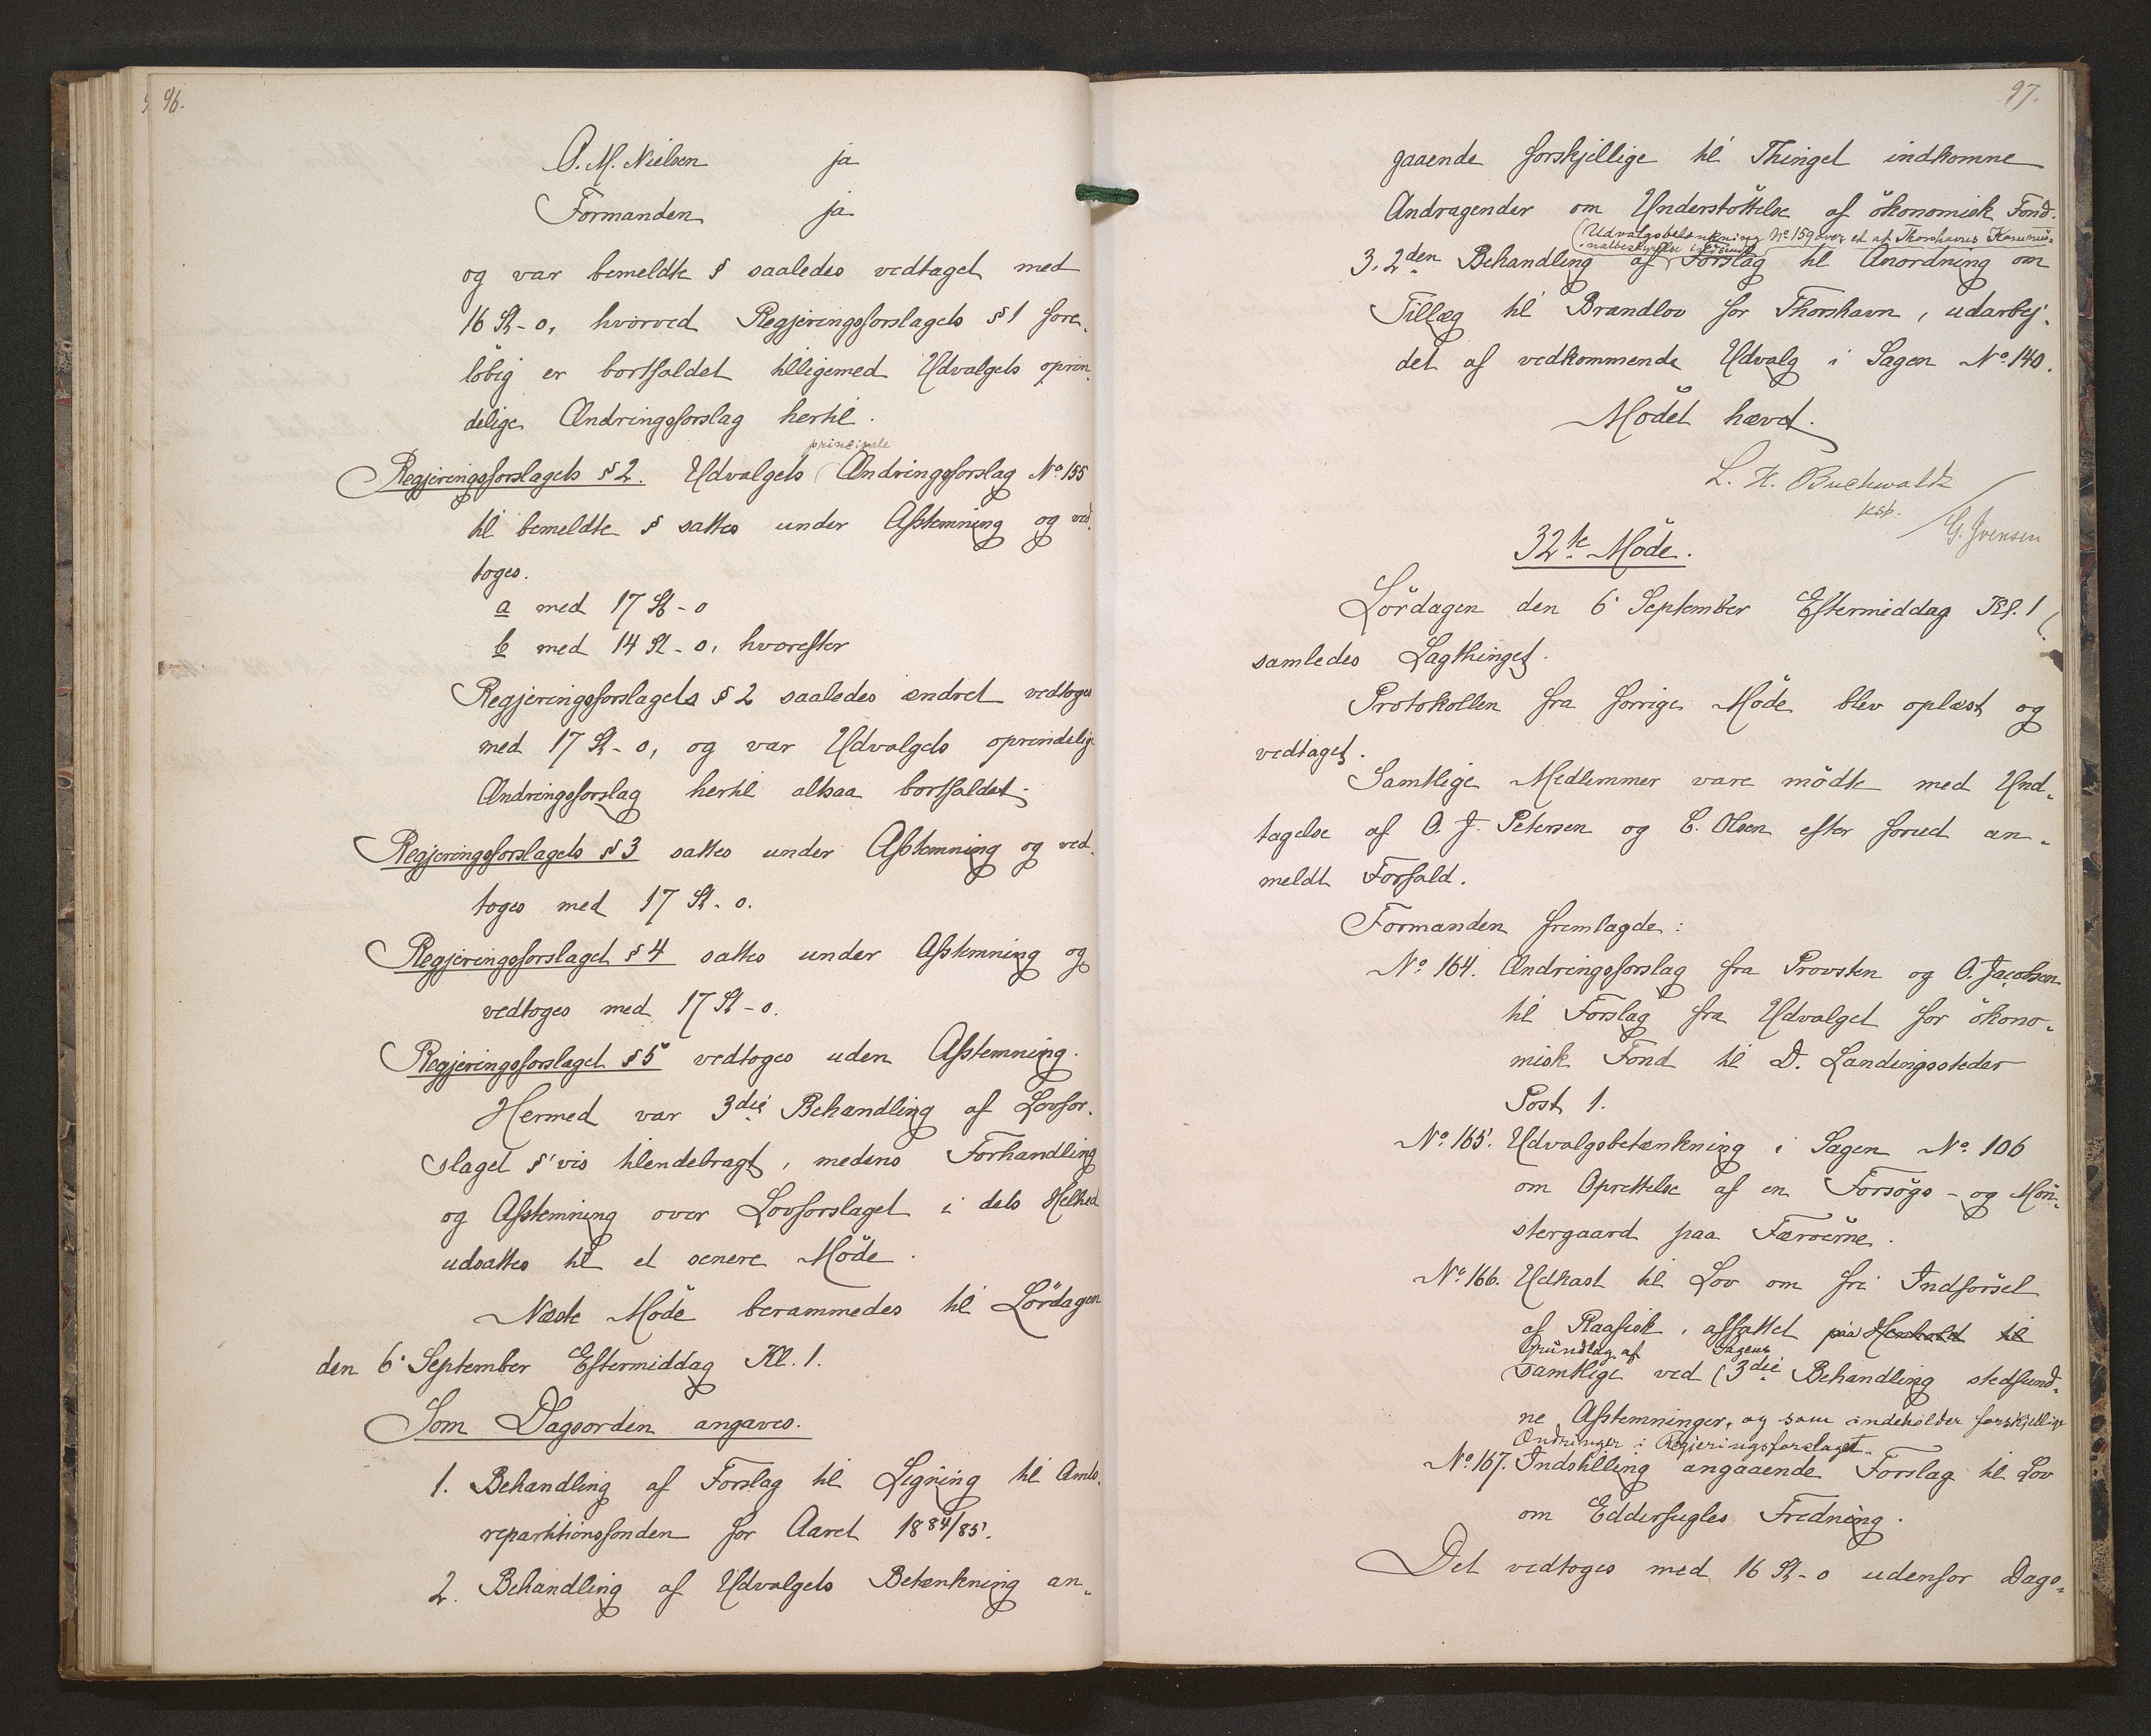 96.
O. M. Nielsen ja
Formanden ja
og var bemeldte § saaledes vedtaget med
16 St - 0, hvorved Regjeringsforslagets § 1 fore-
löbig er bortfaldet tilligemed Udvalgets oprin
delige Ændringsforslag hertil.
principale
Regjeringsforslagets § 2. Udvalgets Ændringsforslag No. 155
til bemeldte § sattes under Afstemning og ved-
toges.
a med 17 St - 0
b med 14 St - 0, hvorefter
Regjeringsforslagets § 2 saaledes ændret vedtoges
med 17 St - 0, og var Udvalgets oprindelige
Ændringsforslag hertil altsaa bortfaldet.
Regjeringsforslagets § 3 sattes under Afstemning og ved-
toges med 17 St - 0.
Regjeringsforslaget § 4 sattes under Afstemning og
vedtoges med 17 St - 0.
Regjeringsforslaget § 5 vedtoges uden Afstemning.
Hermed var 3die Behandling af Lovfor-
slaget §'vis tilendebragt, medens Forhandling
og Afstemning over Lovforslaget i dets Helhed
udsattes til et senere Möde.
Næste Möde berammedes til Lördagen
den 6. September Eftermiddag Kl. 1.
Som Dagsorden angaves.
1. Behandling af Forslag til Ligning til Amts-
repartitionsfonden for Aaret 1884/85.
2. Behandling af Udvalgets Betænkning an-
97.
gaaende forskjellige til Thinget indkomne
Andragender om Understöttelse af ökonomisk Fond.
(Udvalgsbetænkning No. 159 over et af Thorshavns Kommu-
nalbestyrelse indsendt
3. 2den Behandling af Forslag til Anordning om
Tillæg til Brandlov for Thorshavn, udarbej-
det af vedkommende Udvalg i Sagen No. 140.
Mödet hævet.
L. H. Buchwaldt
kst.
G. Ivensen
32te Möde.
Lördagen den 6. September Eftermiddag Kl. 1
samledes Lagthinget.
Protokollen fra forrige Möde blev oplæst og
vedtaget.
Samtlige Medlemmer vare mödte med Und-
tagelse af O. J. Petersen og E. Olsen efter forud an-
meldt Forfald.
Formanden fremlagde:
No. 164. Ændringsforslag fra Provsten og O. Jacobsen
til Forslag fra Udvalget for ökono-
misk Fond til D. Landingssteder
Post 1.
No. 165. Udvalgsbetænkning i Sagen No. 106
om Oprettelse af en Forsögs- og Mön-
stergaard paa Færöerne.
No. 166. Udkast til Lov om fri Indförsel
af Raafisk, affattet paa Henhold til
Grundlag af Sagens
samtlige ved 3die Behandling stedfund-
ne Afstemninger, og som indeholder forskjellige
Ændringer i Regjeringsforslaget.
No. 167. Indstilling angaaende Forslag til Lov
om Edderfugles Fredning.
Det vedtoges med 16 St - 0 udenfor Dags-